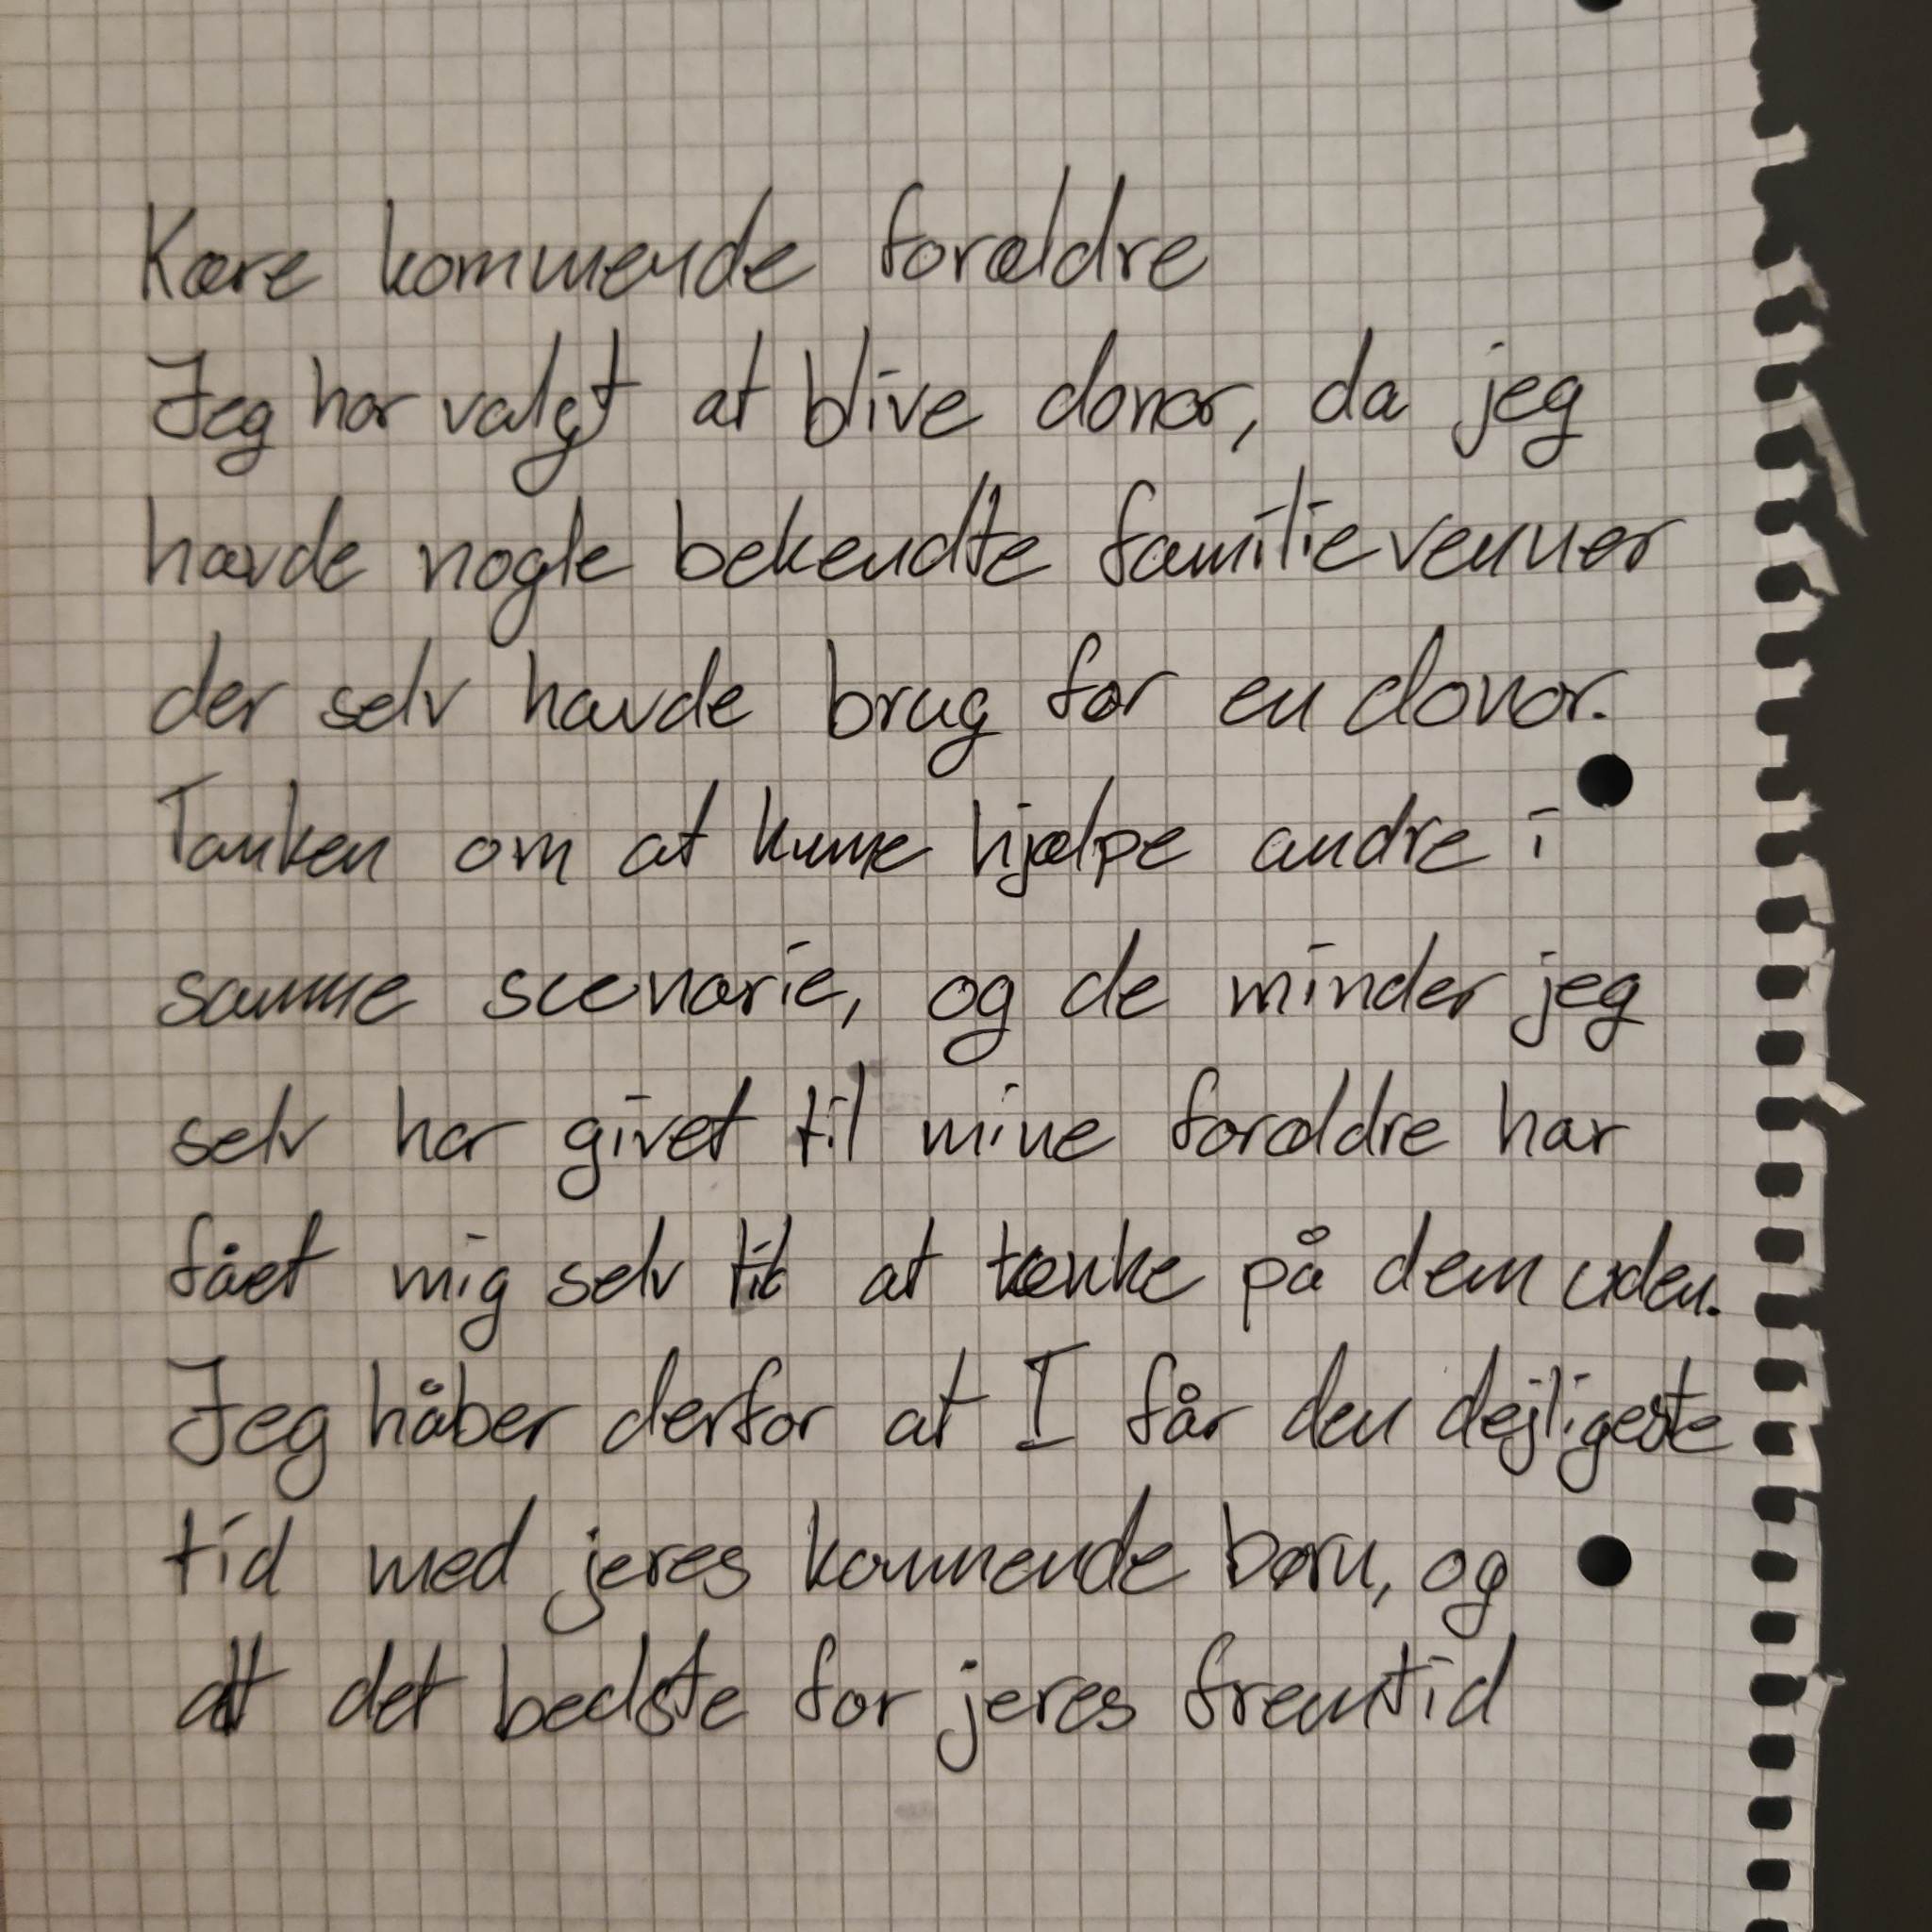 Kære kommende forældre
Jeg har valgt at blive donor, da jeg
havde nogle bekendte familievenner
der selv havde brug for en donor.
Tanken om at kunne hjælpe andre i
samme scenarie, og de minder jeg
selv har givet til mine forældre har
fået mig selv til at tænke på dem uden.
Jeg håber derfor at I får den dejligeste
tid med jeres kommende børn, og
alt det bedste for jeres fremtid